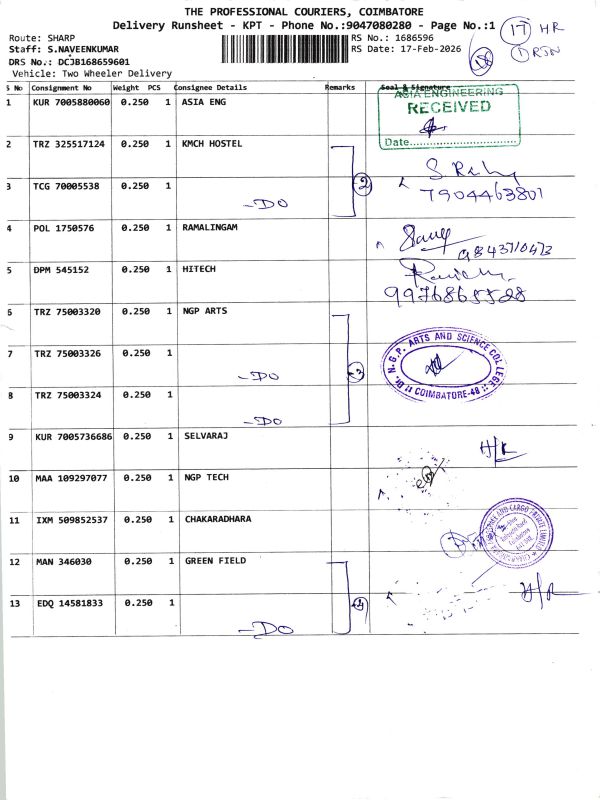 THE PROFESSIONAL COURIERS, COIMBATORE
Delivery Runsheet - KPT - Phone No.:9047080280 - Page No.:1
17 HR
Route: SHARP
RS No.: 1686596
Staff: S.NAVEENKUMAR
RS Date: 17-Feb-2026
DRS No.: DCJB168659601
Vehicle: Two Wheeler Delivery
S No Consignment No Weight PCS Consignee Details Remarks Seal & Signature
1 KUR 7005880060 0.250 1 ASIA ENG
ASIA ENGINEERING
RECEIVED
Date
2 TRZ 325517124 0.250 1 KMCH HOSTEL
2
3 TCG 70005538 0.250 1
-DO
7904463801
4 POL 1750576 0.250 1 RAMALINGAM
9843710473
5 DPM 545152 0.250 1 HITECH
9976868528
6 TRZ 75003320 0.250 1 NGP ARTS
Dr. N.G.P. ARTS AND SCIENCE COLLEGE
COIMBATORE-48
7 TRZ 75003326 0.250 1
-DO
3
8 TRZ 75003324 0.250 1
-DO
9 KUR 7005736686 0.250 1 SELVARAJ
H/R
10 MAA 109297077 0.250 1 NGP TECH
11 IXM 509852537 0.250 1 CHAKARADHARA
12 MAN 346030 0.250 1 GREEN FIELD
H/R
13 EDQ 14581833 0.250 1
4
-DO